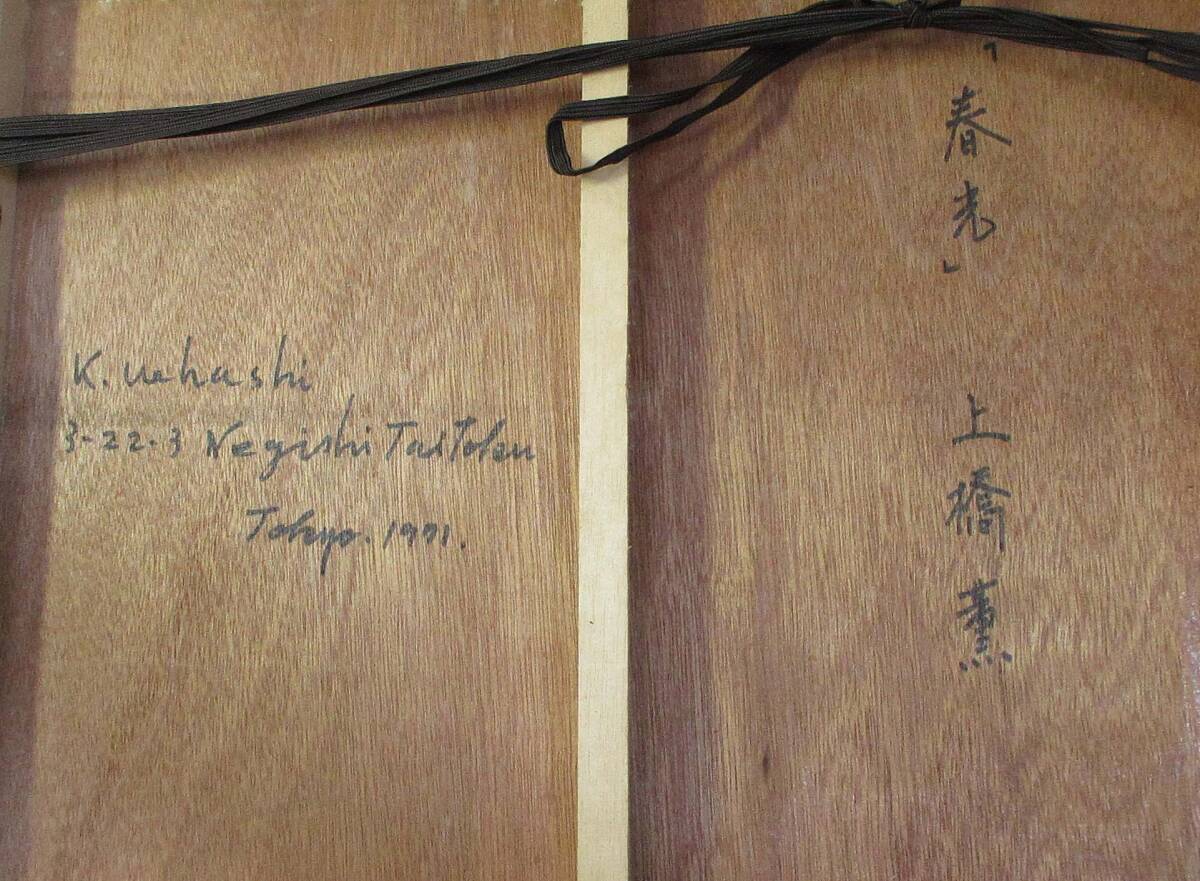 K. Uehashi
3-22-3 Negishi Taitoku
Tokyo. 1971.
「春光」
上橋薫